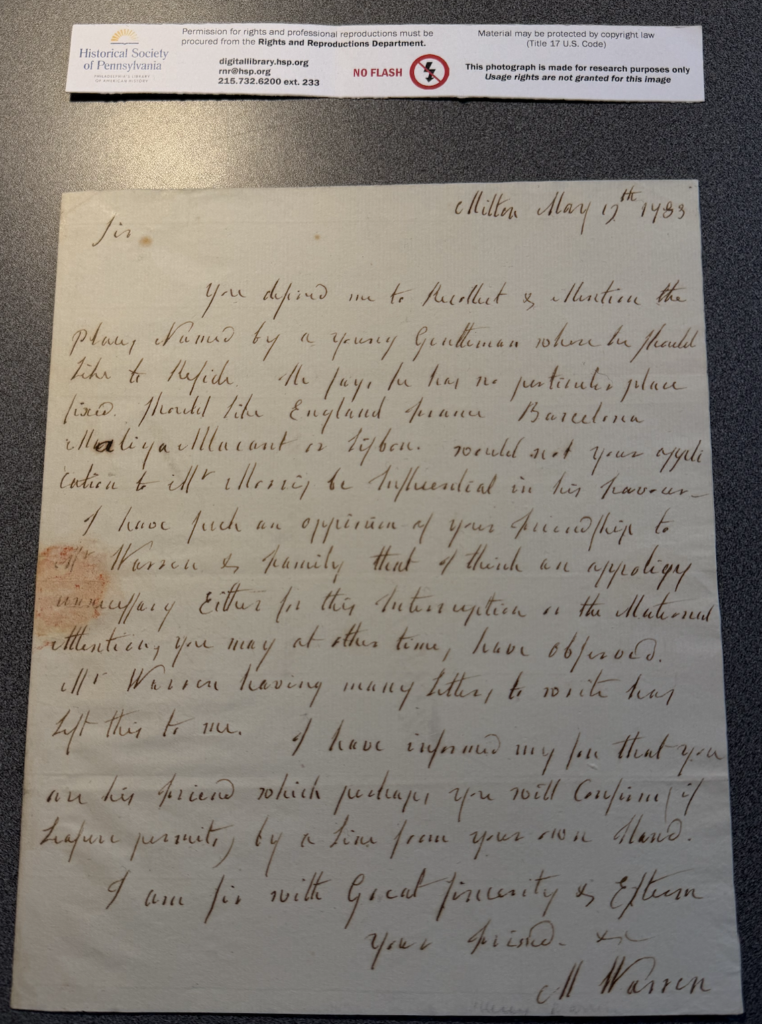 Historical Society
of Pennsylvania
Permission for rights and professional reproductions must be
procured from the Rights and Reproductions Department.
digitallibrary.hsp.org
rnr@hsp.org
215.732.6200 ext. 233
NO FLASH
Material may be protected by copyright law
(Title 17 U.S. Code)
This photograph is made for research purposes only
Usage rights are not granted for this image
Milton May 17th 1783
Sir
You desired me to Recollect & Mention the
places Named by a young Gentleman where he should
like to Reside. He says he has no perticuler place
fixed. should like England france Barcelona
Maliga Alacant or Lisbon. would not your appli
cation to Mr Morris be Influential in his favour—
I have such an oppinion of your friendship to
Mr Warren & family that I think an appoligy
unnecessary Either for this Interruption or the Maternal
Attentions you may at other times have observed.
Mr Warren having many letters to write has
left this to me. I have informed my son that you
are his friend which perhaps you will Confirm, if
leasure permits, by a line from your own Hand.
I am sir with Great sincerity & Esteem
your friend &c
M Warren